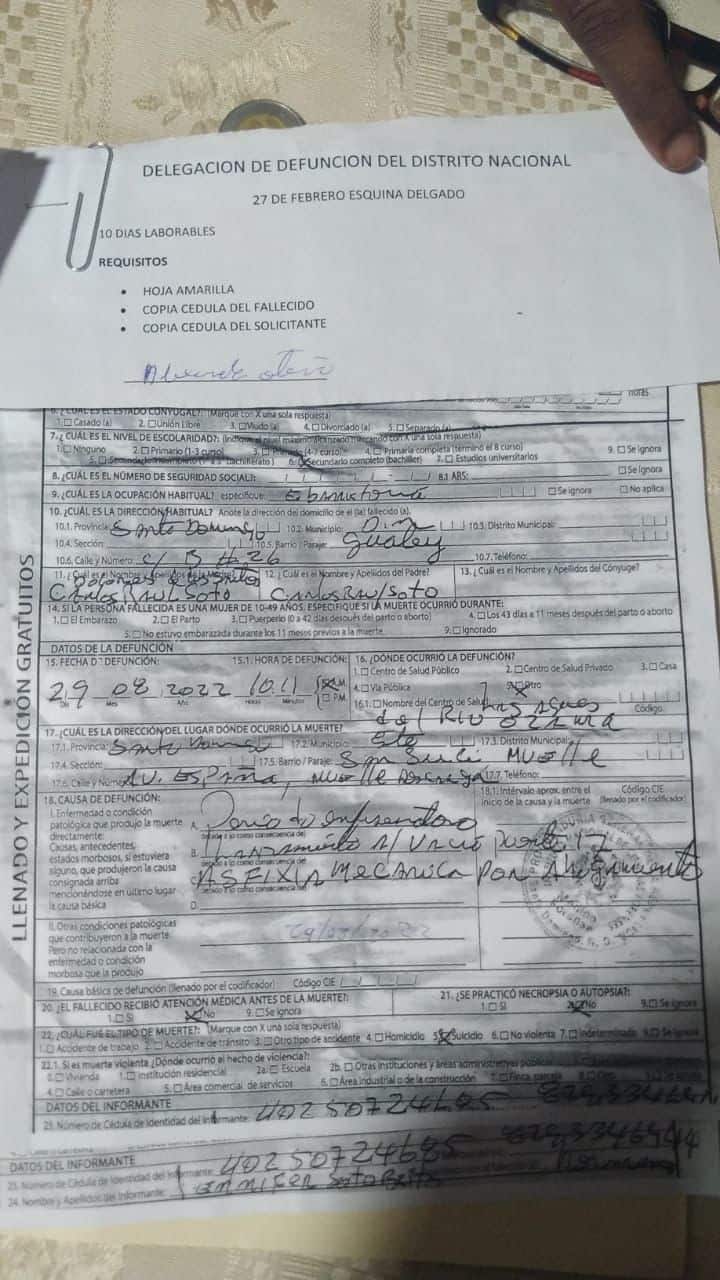 DELEGACION DE DEFUNCION DEL DISTRITO NACIONAL
27 DE FEBRERO ESQUINA DELGADO
10 DIAS LABORABLES
REQUISITOS
• HOJA AMARILLA
• COPIA CEDULA DEL FALLECIDO
• COPIA CEDULA DEL SOLICITANTE
Horas
6. ¿CUÁL ES EL ESTADO CONYUGAL?: (Marque con X una sola respuesta)
1.☐ Casado (a) 2.☐ Unión Libre 3.☐ Viudo (a) 4.☐ Divorciado (a) 5.☐ Separado (a)
7.¿CUÁL ES EL NIVEL DE ESCOLARIDAD?: (Indique el nivel máximo alcanzado marcando con X una sola respuesta)
1.☐ Ninguno 2.☐ Primario (1-3 curso) 3.☐ (4-7 curso) 4.☐ Primaria completa (terminó el 8 curso) 9.☐ Se ignora
5.☐ 6.☒ Secundario completo (bachiller) 7.☐ Estudios universitarios
8. ¿CUÁL ES EL NÚMERO DE SEGURIDAD SOCIAL?: 8.1 ARS: ☐ Se ignora
9. ¿CUÁL ES LA OCUPACIÓN HABITUAL? especifique: Ebanisteria ☐ Se ignora ☐ No aplica
10. ¿CUÁL ES LA DIRECCIÓN HABITUAL? Anote la dirección del domicilio de el (la) fallecido (a).
10.1. Provincia: Santo Domingo 10.2. Municipio: D.N 10.3. Distrito Municipal:
10.4. Sección: 10.5. Barrio / Paraje: Gualey
10.6. Calle y Número: C/ B # 26 10.7. Teléfono:
11. ¿Cuál es el Nombre y Apellidos de la Madre? 12. ¿Cuál es el Nombre y Apellidos del Padre? 13. ¿Cuál es el Nombre y Apellidos del Cónyuge?
Carlos Raul Soto Carlos Raul Soto
14. SI LA PERSONA FALLECIDA ES UNA MUJER DE 10-49 AÑOS, ESPECIFIQUE SI LA MUERTE OCURRIÓ DURANTE:
1.☐ El Embarazo 2.☐ El Parto 3.☐ Puerperio (0 a 42 días después del parto o aborto) 4.☐ Los 43 días a 11 meses después del parto o aborto
5.☐ No estuvo embarazada durante los 11 meses previos a la muerte 9.☐ Ignorado
DATOS DE LA DEFUNCIÓN
15. FECHA DE DEFUNCIÓN: 15.1. HORA DE DEFUNCIÓN: 16. ¿DÓNDE OCURRIÓ LA DEFUNCIÓN?
1.☐ Centro de Salud Público 2.☐ Centro de Salud Privado 3.☐ Casa
29 08 2022 10:11 A.M. 4.☐ Vía Pública 5.☒ Otro
Día Mes Año Horas Minutos ☐ P.M. 16.1.☐ Nombre del Centro de Salud Las Aguas
del Rio Ozama Código
17. ¿CUÁL ES LA DIRECCIÓN DEL LUGAR DÓNDE OCURRIÓ LA MUERTE?
17.1. Provincia: Santo Domingo 17.2. Municipio: Este 17.3. Distrito Municipal:
17.4. Sección: 17.5. Barrio / Paraje: Muelle
17.6. Calle y Número: AV. ESPAÑA, Muelle 17.7. Teléfono:
18. CAUSA DE DEFUNCIÓN: 18.1. Intérvalo aprox. entre el Código CIE
inicio de la causa y la muerte (llenado por el codificador)
I. Enfermedad o condición
patológica que produjo la muerte A.
directamente: debido a (o como consecuencia de)
Causas, antecedentes, B. Lanzamiento Al Vacio Puente 17
estados morbosos, si estuviera debido a (o como consecuencia de)
alguno, que produjeron la causa C. ASFIXIA MECANICA POR Ahogamiento
consignada arriba debido a (o como consecuencia de)
mencionándose en último lugar D.
la causa básica
II. Otras condiciones patológicas
que contribuyeron a la muerte
Pero no relacionada con la
enfermedad o condición
morbosa que la produjo
19. Causa básica de defunción (llenado por el codificador) Código CIE
20. ¿EL FALLECIDO RECIBIÓ ATENCIÓN MÉDICA ANTES DE LA MUERTE?: 21. ¿SE PRACTICÓ NECROPSIA O AUTOPSIA?:
1.☐ Sí ☒ No 9.☐ Se ignora 1.☐ Sí ☒ No 9.☐ Se ignora
22. ¿CUÁL FUE EL TIPO DE MUERTE?: (Marque con X una sola respuesta)
1.☐ Accidente de trabajo 2.☐ Accidente de tránsito 3.☐ Otro tipo de accidente 4.☐ Homicidio 5.☒ Suicidio 6.☐ No violenta 7.☐ Indeterminado 9.☐ Se ignora
22.1. Si es muerte violenta ¿Dónde ocurrió el hecho de violencia?:
0.☐ Vivienda 1.☐ Institución residencial 2a.☐ Escuela 2b.☐ Otras instituciones y áreas administrativas
4.☐ Calle o carretera 5.☐ Área comercial o de servicios 6.☐ Área industrial o de la construcción
DATOS DEL INFORMANTE
23. Número de Cédula de Identidad del Informante: 40250724685
DATOS DEL INFORMANTE
23. Número de Cédula de Identidad del Informante: 40250724685
24. Nombre y Apellidos del Informante: Jennifer Soto
LLENADO Y EXPEDICIÓN GRATUITOS